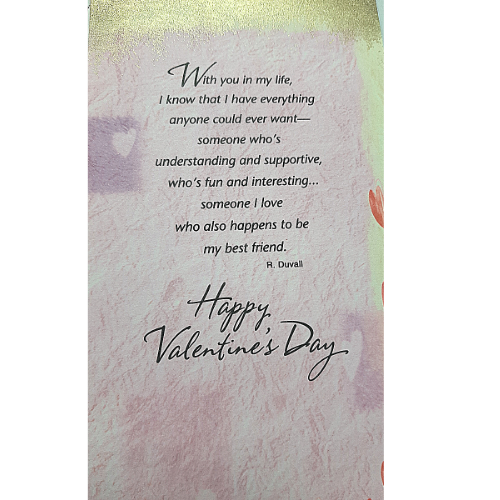 With you in my life,
I know that I have everything
anyone could ever want—
someone who's
understanding and supportive,
who's fun and interesting...
someone I love
who also happens to be
my best friend.
R. Duvall
Happy
Valentine's Day